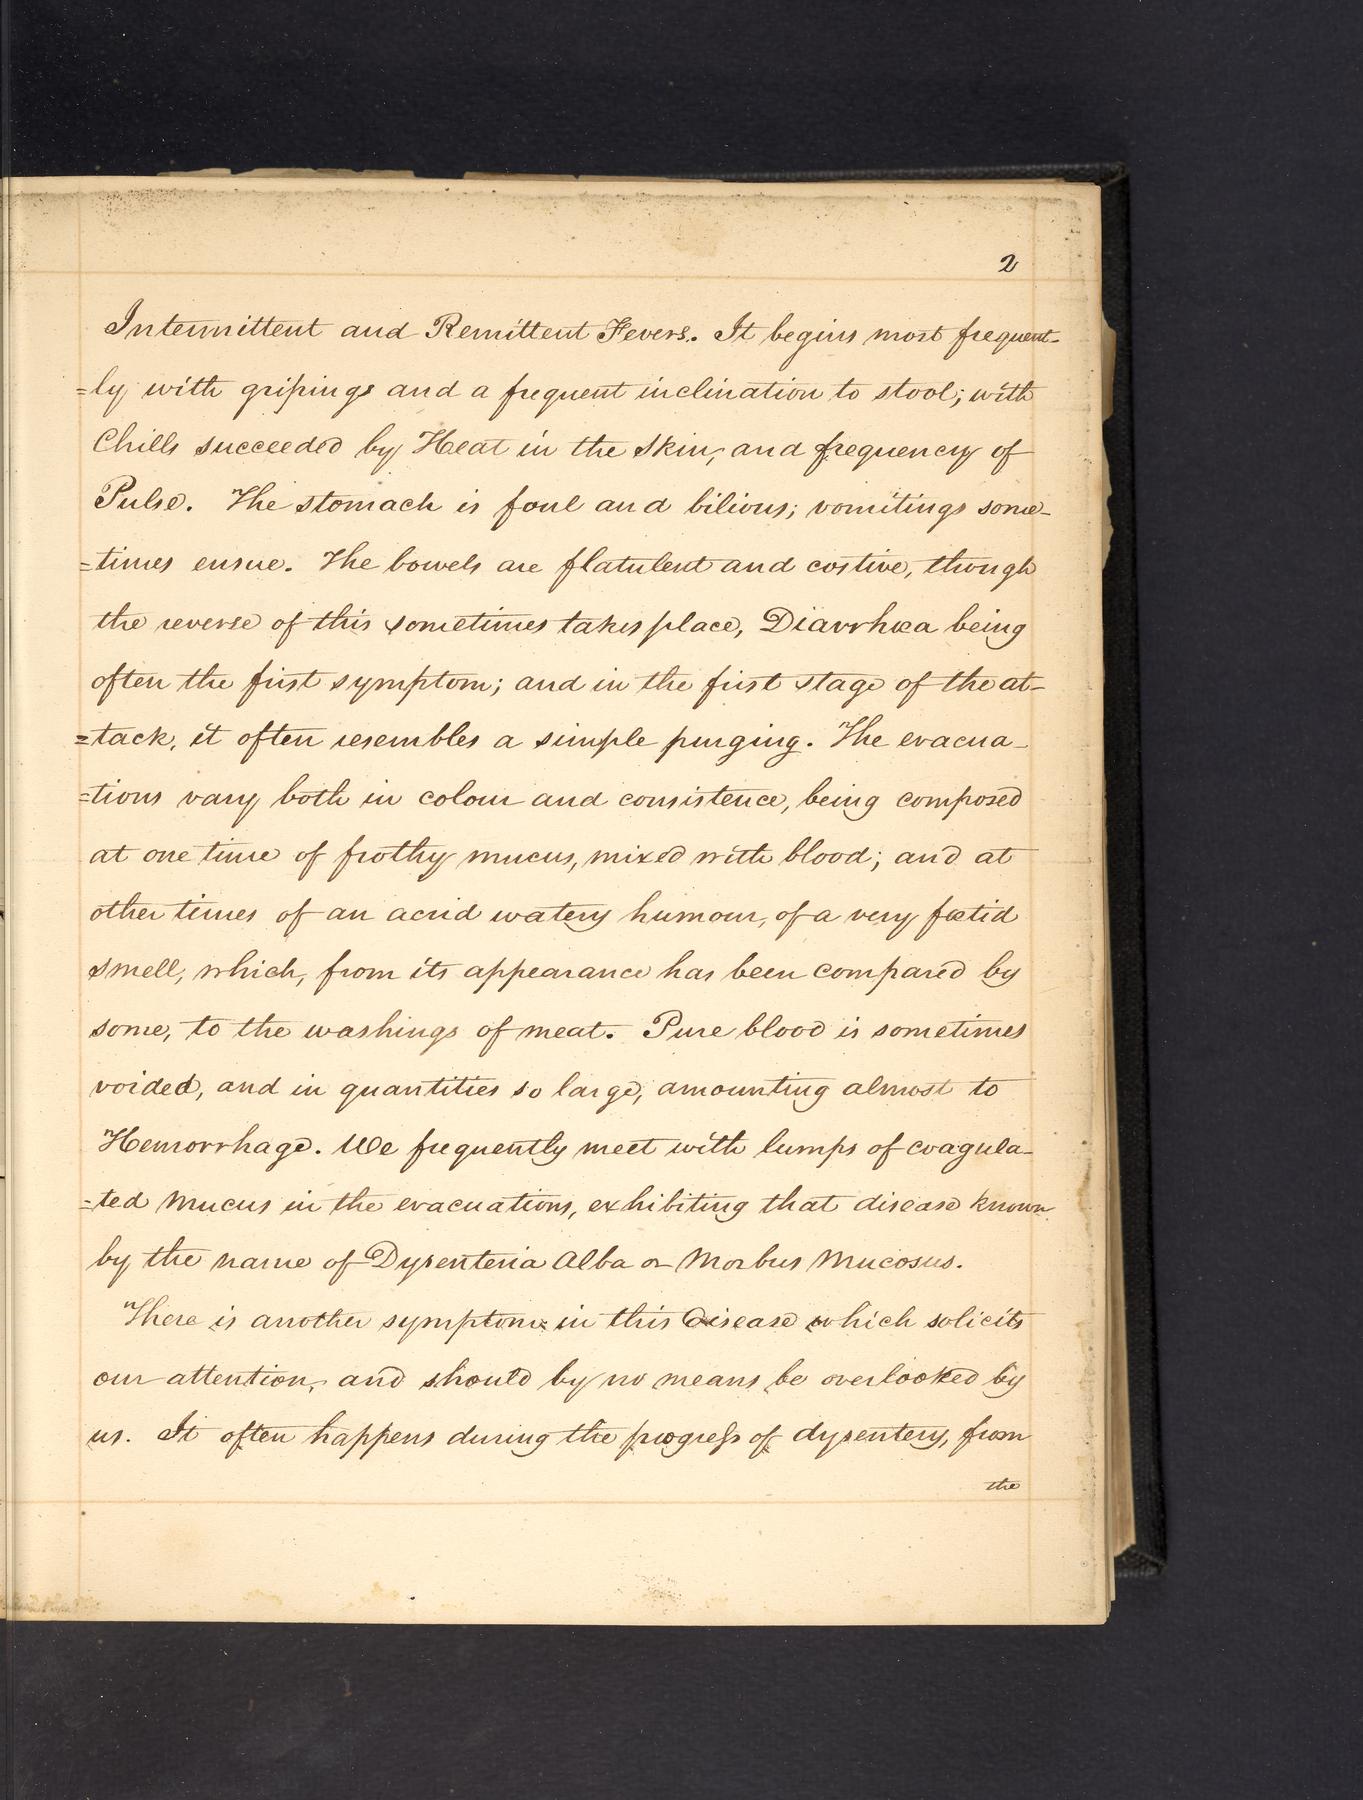 2
Intermittent and Remittent Fevers. It begins most frequent-
=ly with gripings and a frequent inclination to stool; with
Chills succeeded by Heat in the Skin, and frequency of
Pulse. The stomach is foul and bilious; vomitings some-
=times ensue. The bowels are flatulent and costive, though
the reverse of this sometimes takes place, Diarrhœa being
often the first symptom; and in the first stage of the at-
=tack, it often resembles a simple purging. The evacua-
=tions vary both in colour and consistence, being composed
at one time of frothy mucus, mixed with blood; and at
other times of an acrid watery humour, of a very fœtid
smell, which, from its appearance has been compared by
some, to the washings of meat. Pure blood is sometimes
voided, and in quantities so large, amounting almost to
Hemorrhage. We frequently meet with lumps of coagula-
=ted Mucus in the evacuations, exhibiting that disease known
by the name of Dysenteria Alba or Morbus Mucosus.
There is another symptom in this Disease which solicits
our attention, and should by no means be overlooked by
us. It often happens during the progress of dysentery, from
the